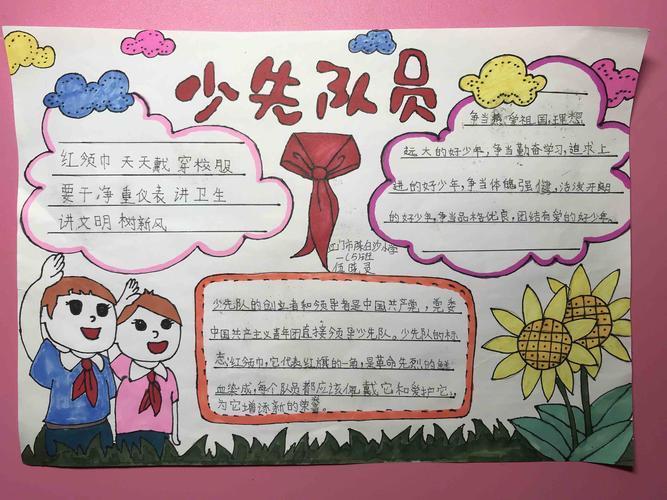 少先队员
红领巾 天天戴 穿校服
要干净 重仪表 讲卫生
讲文明 树新风
争当热爱祖国,理想
远大的好少年,争当勤奋学习,追求上
进的好少年,争当体魄强健,活泼开朗
的好少年,争当品格优良,团结有爱的好少年。
江门市陈白沙小学
一(5)班
伍 灵
少先队的创立者和领导者是中国共产党,党委
中国共产主义青年团直接领导少先队。少先队的标
志:红领巾,它代表红旗的一角,是革命先烈的鲜
血染成,每个队员都应该佩戴它和爱护它,
为它增添新的荣誉。